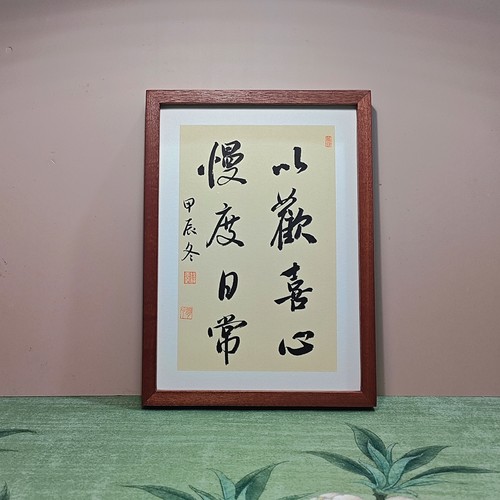 以歡喜心
慢度日常
甲辰冬